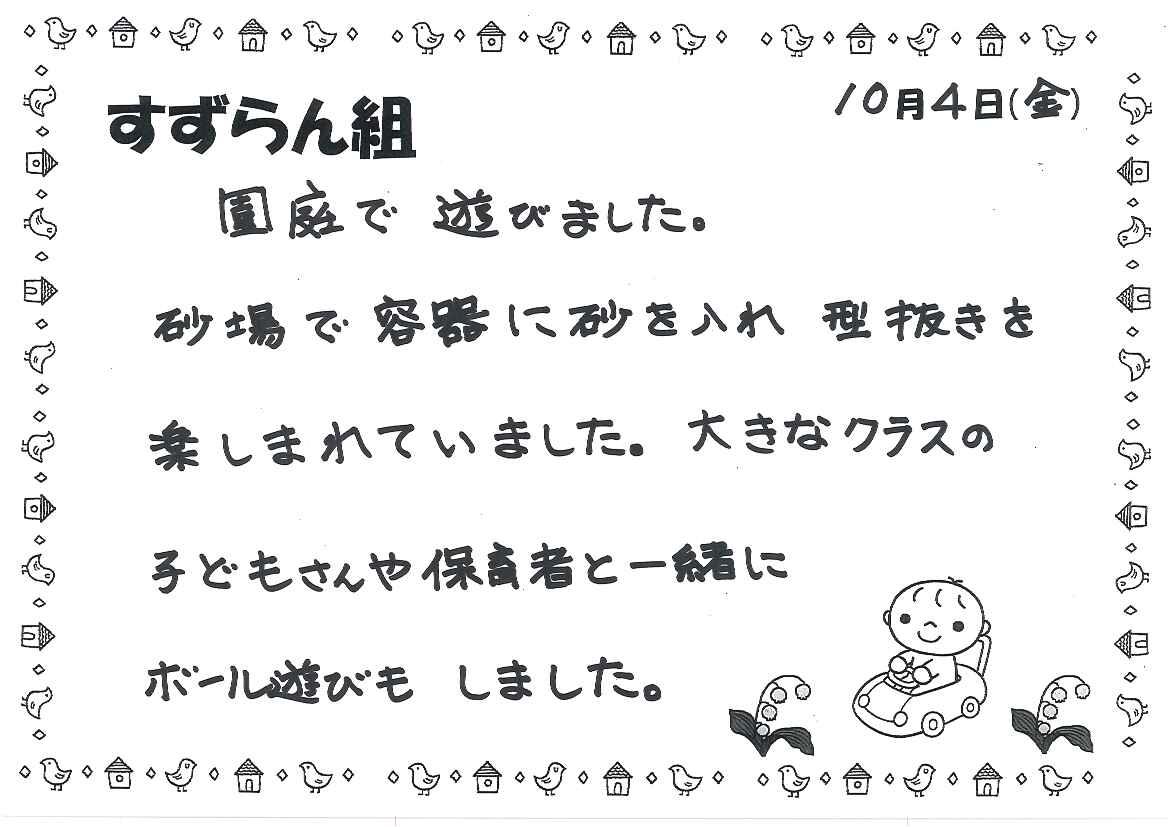 すずらん組
10月4日(金)
園庭で遊びました。
砂場で容器に砂を入れ型抜きを
楽しまれていました。大きなクラスの
子どもさんや保育者と一緒に
ボール遊びもしました。